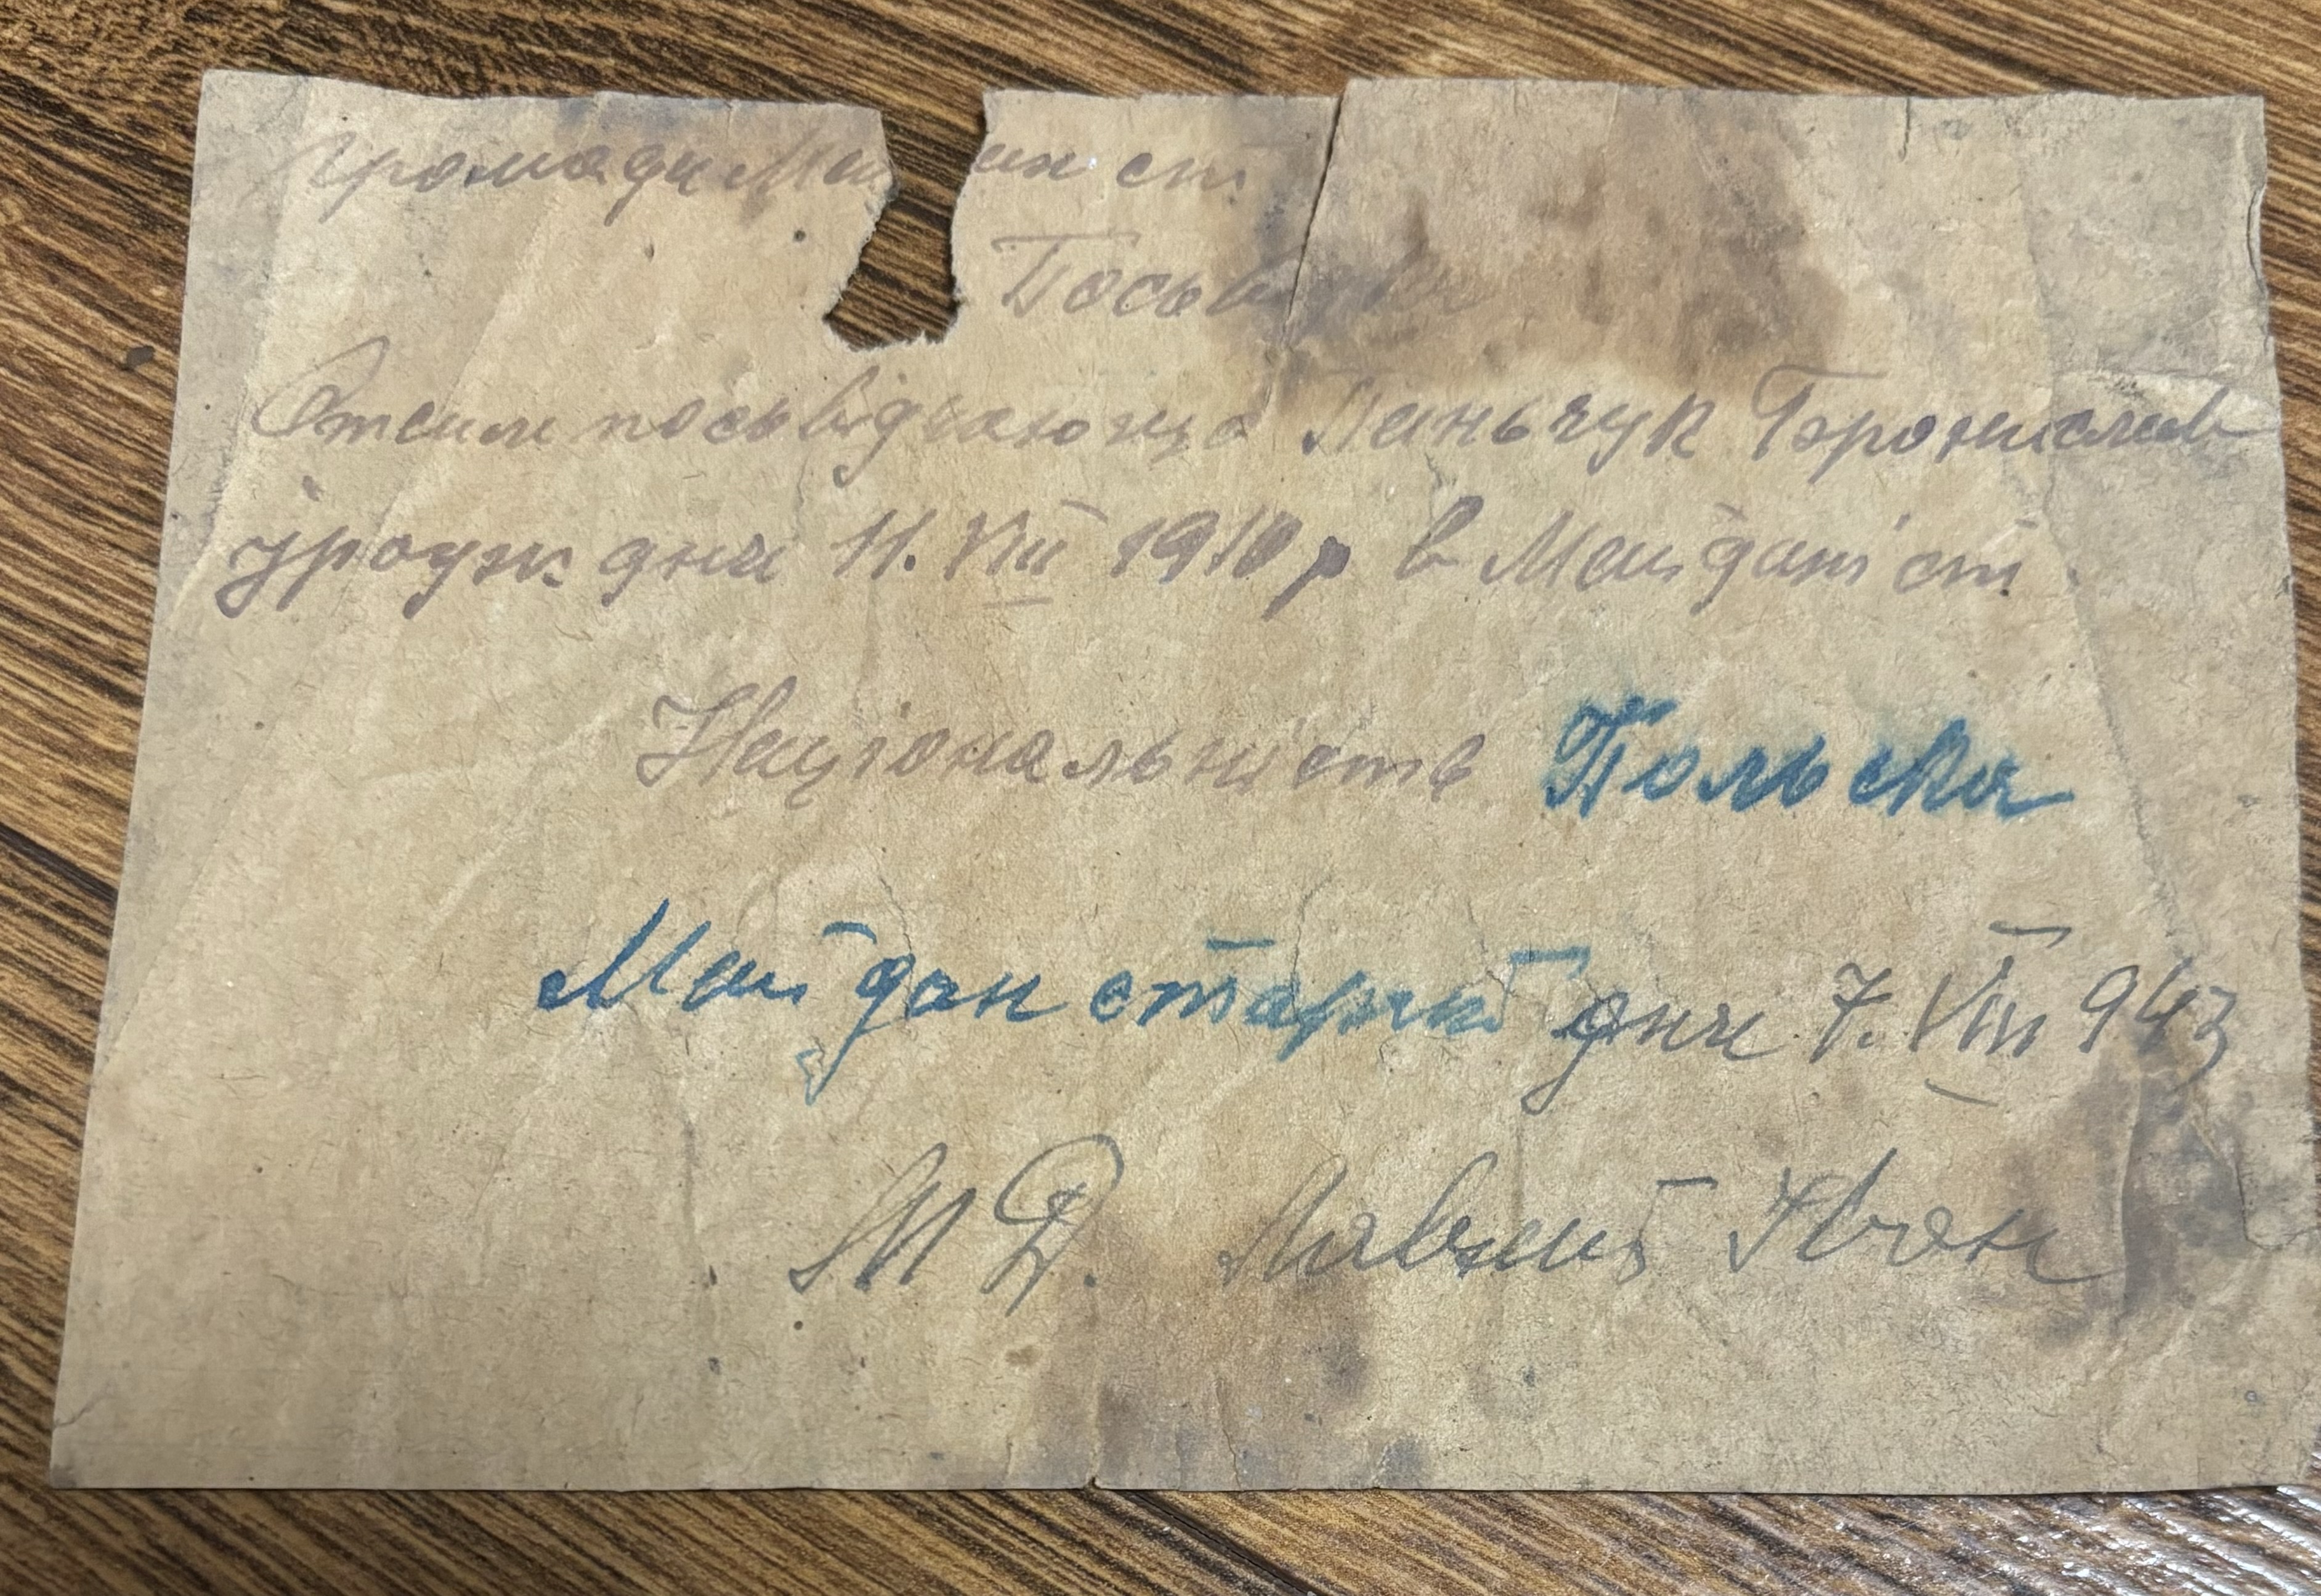 громади Май ан ст
Посьвідка
Отсим посьвідчаюче Паньчук Броніслав
уродж дня 11. VIII 1910 р в Майдані ст
Національність Польска
Майдан старий дня 7. VIII 943
М Д. Іван